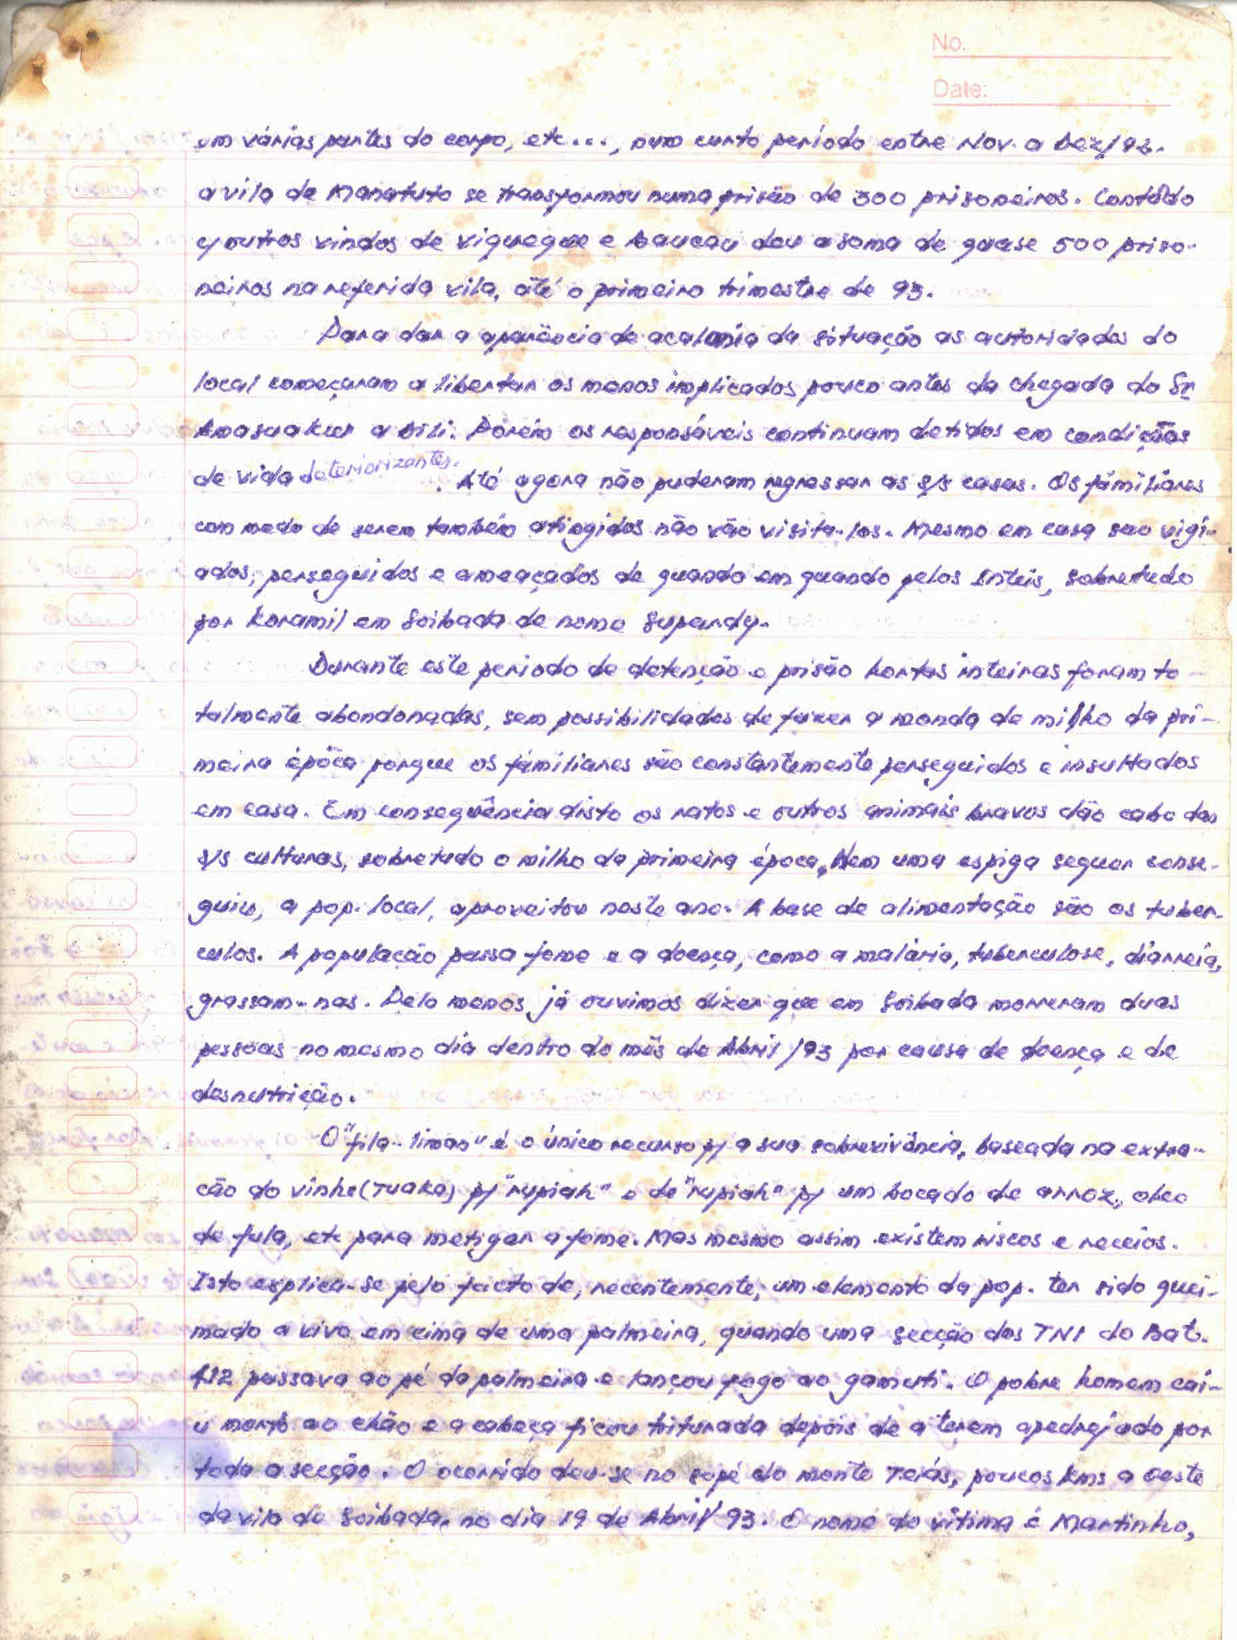 No.
Date:
em várias partes do corpo, etc..., num curto período entre Nov. a Dez/92.
a vila de Manatuto se transformou numa prisão de 300 prisoneiros. Contôdo
c/ outros vindos de viqueque e Baucau deu a soma de quase 500 priso-
neiros na referida vila, até o primeiro trimestre de 93.
Para dar a aparência de acalmia da situação as autoridades do
local começaram a libertar os menos implicados pouco antes da chegada do Sr
Amosuakur a Dili. Porém os responsáveis continuam detidos em condições
de vida deteriorizantes. Até agora não puderam regressar as s/s casas. Os familiares
com medo de serem também atingidos não vão visita-los. Mesmo em casa sao vigi-
ados, perseguidos e ameaçados de quando em quando pelos Inteis, sobretudo
por Koramil em Soibada de nome Supandy.
Durante este período de detenção e prisão hortas inteiras foram to-
talmente abondonadas, sem possibilidades de fazer a monda de milho da pri-
meira época porque os familiares são constantemente perseguidos e insultados
em casa. Em consequência disto os ratos e outros animais bravos dão cabo das
s/s culturas, sobretudo o milho da primeira época. Nem uma espiga sequer conse-
guiu, a pop. local, aproveitou neste ano. A base de alimentação são os tuber-
culos. A população passa fome e a doença, como a malária, tuberculose, diarreia,
grassam-nas. Pelo menos já ouvimos dizer que em Soibada morreram duas
pessoas no mesmo dia dentro do mês de Abril/93 por causa de doença e de
desnutrição.
O "fila-liman" é o único recurso p/ a sua sobrevivência, baseada na extra-
ção do vinho (Tuaka) p/ "rupiah" e de "rupiah" p/ um bocado de arroz, oleo
de fula, etc para metigar a fome. Mas mesmo assim existem riscos e receios.
Isto explica-se pelo facto de, recentemente, um elemento da pop. ter sido quei-
mado a vivo em cima de uma palmeira, quando uma secção dos TNI do Bat.
412 passava ao pé da palmeira e lançou fogo ao gamuti. O pobre homem cai-
u morto ao chão e a cabeça ficou triturada depois de a terem apedrejado por
toda a secção. O ocorrido deu-se no sopé do monte Teras, poucos kms a Oeste
da vila de Soibada, no dia 19 de Abril/93. O nome do vitima é Martinho,